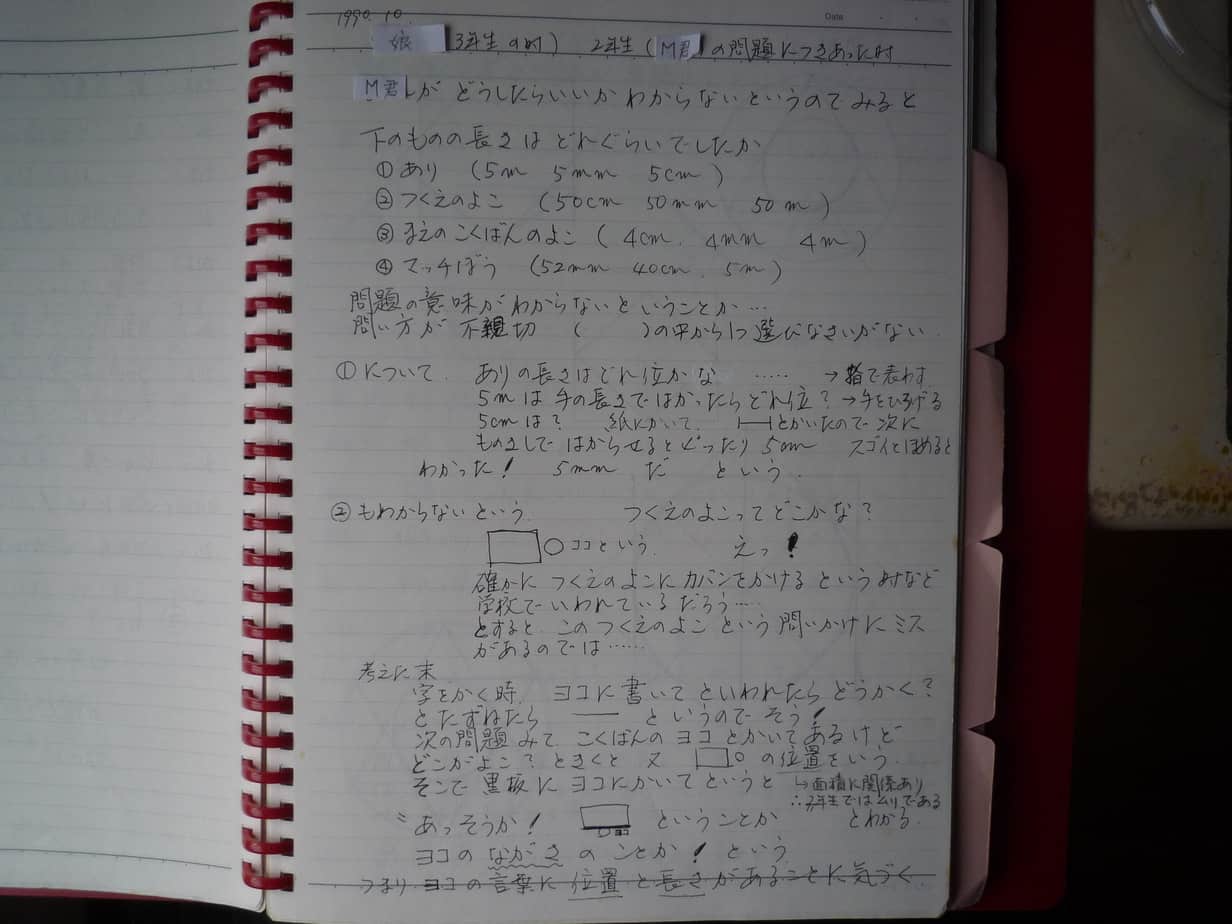 1990. 10.
Date
娘 (3年生の時) 2年生(M君)の問題につきあった時
M君がどうしたらいいかわからないというのでみると
下のものの長さはどれぐらいでしたか
①あり (5m 5mm 5cm)
②つくえのよこ (50cm 50mm 50m)
③まえのこくばんのよこ (4cm. 4mm 4m)
④マッチぼう (52mm 40cm. 5m)
問題の意味がわからないということか…
問い方が不親切 ( )の中から1つ選びなさいがない
①について. ありの長さはどれ位かな …… →指で表わす
5mは手の長さではかったらどれ位?→手をひろげる
5cmは? 紙にかいて. とかいたので次に
ものさしではからせるとぴったり5cm スゴイとほめると
わかった! 5mm だ という.
②もわからないという. つくえのよこってどこかな?
ココという. えっ!
確かにつくえのよこにカバンをかけるという時など
学校でいわれているだろう……
とすると、このつくえのよこという問いかけにミス
があるのでは……
考えた末
字をかく時、ヨコに書いてといわれたらどうかく?
とたずねたら ― というのでそう!
次の問題みて こくばんのヨコとかいてあるけど
どこがよこ?ときくと 又 の位置をいう.
そこで黒板にヨコにかいてというと ↳面積に関係あり
∴3年生ではムリである
あっそうか! ということか とわかる.
ヨコのながさのことか!という
つまりヨコの言葉に位置と長さがあることに気づく